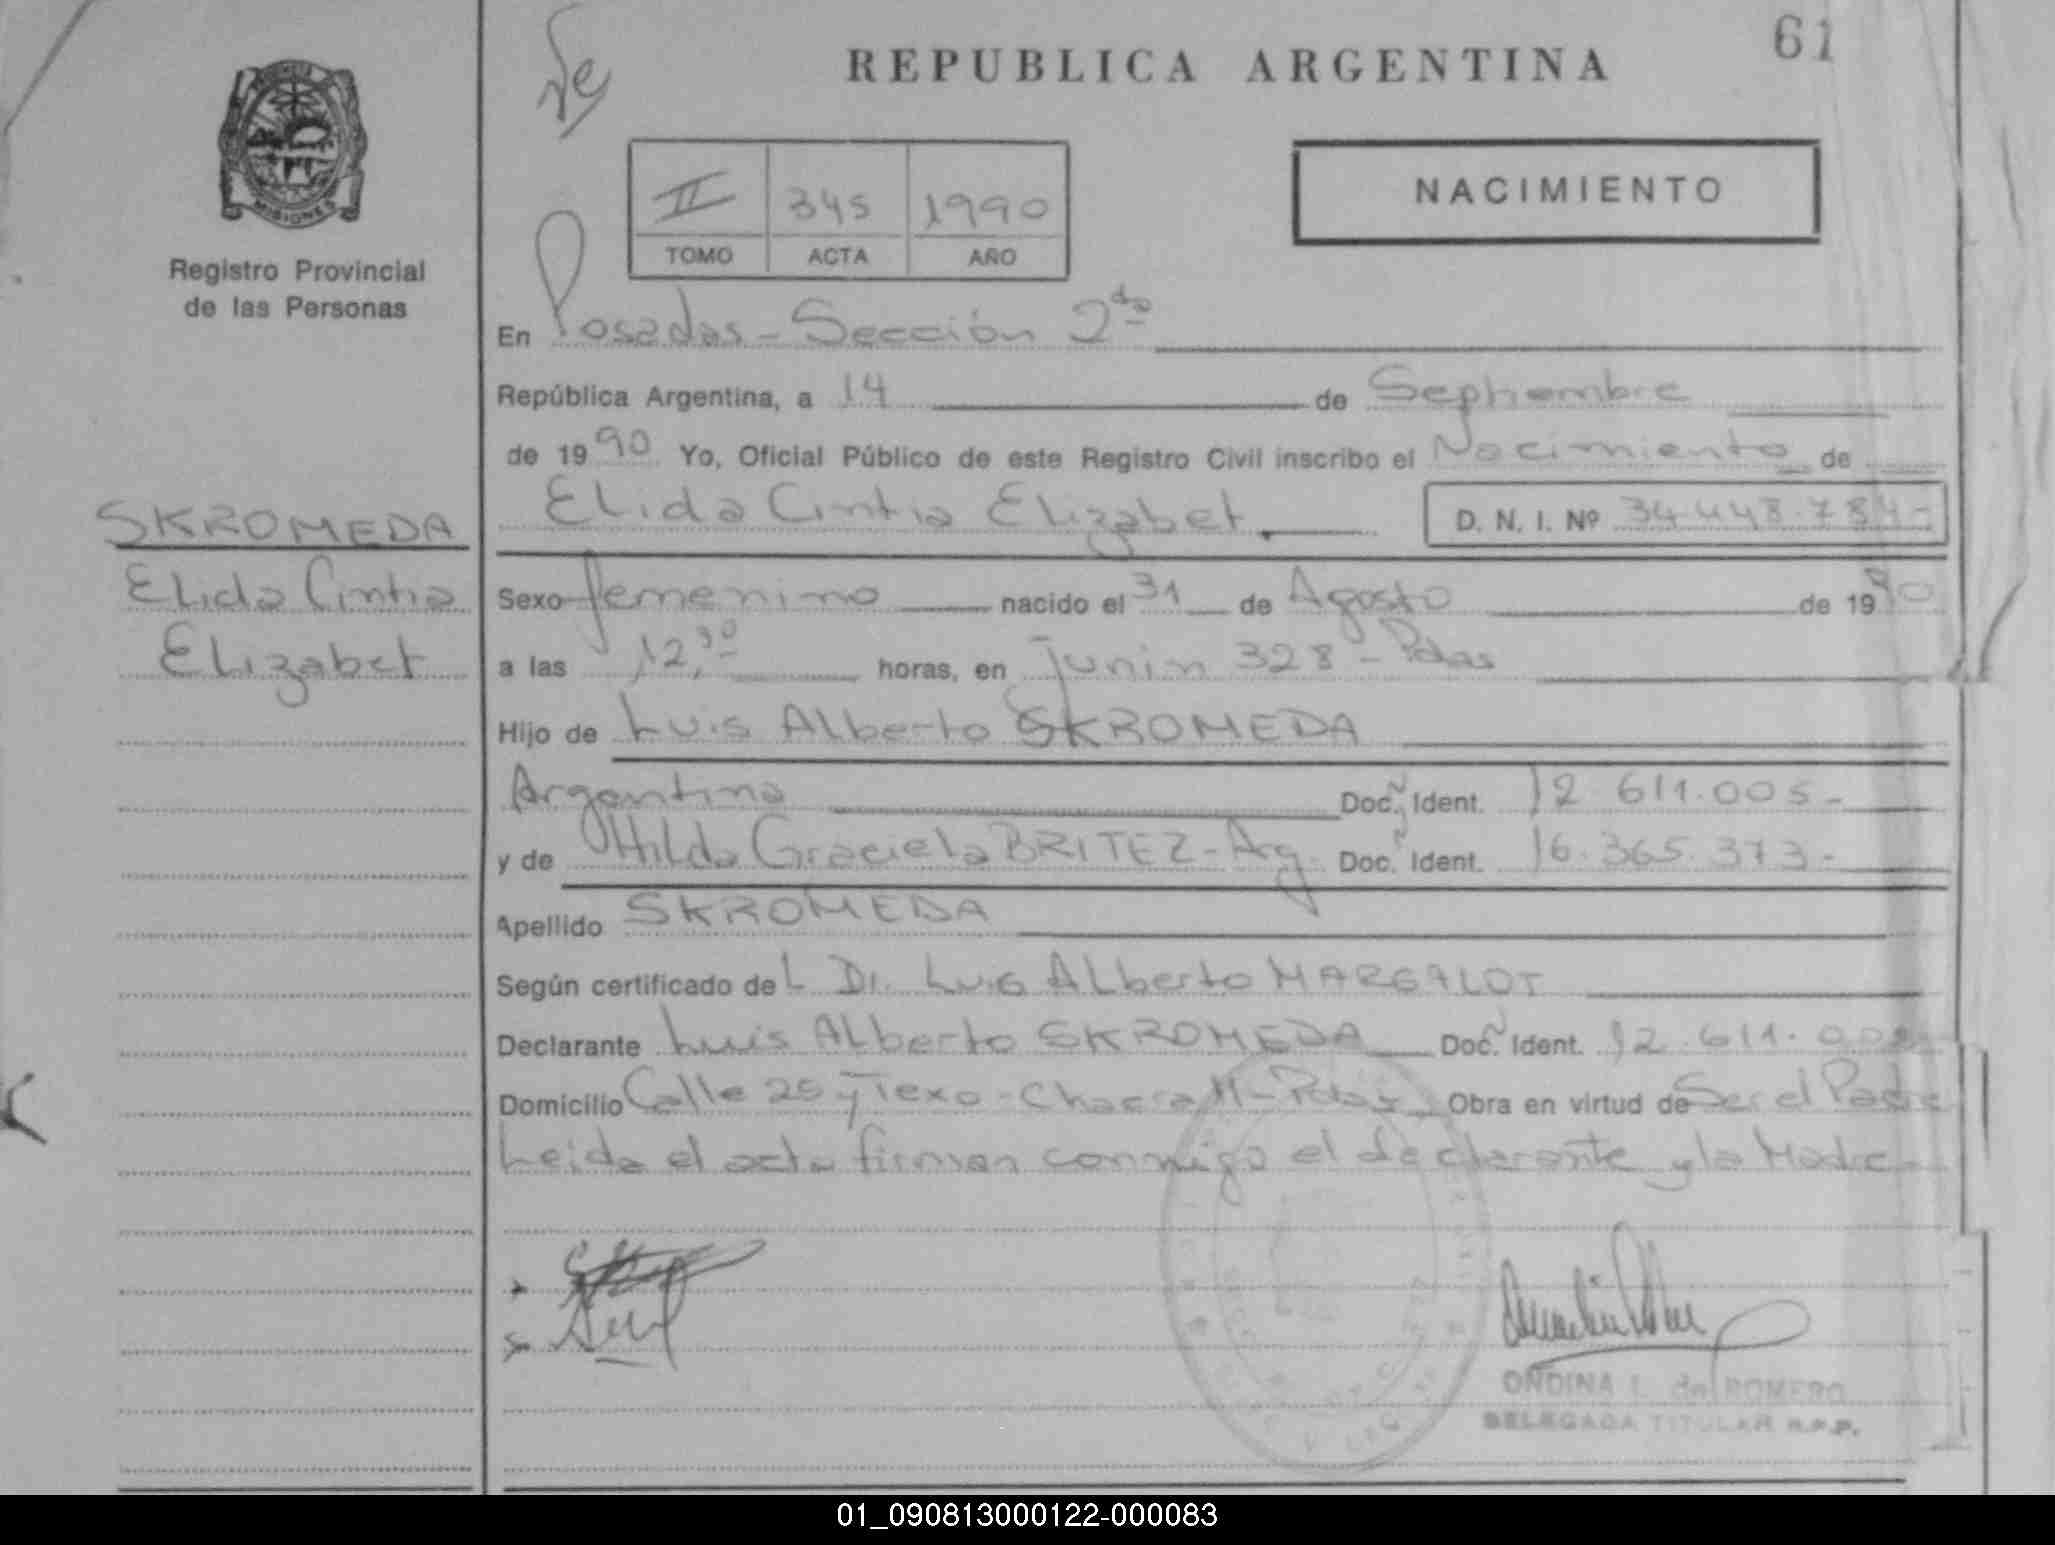 61
REPUBLICA ARGENTINA
NACIMIENTO
II 345 1990
TOMO ACTA AÑO
MISIONES
Registro Provincial
de las Personas
En Posadas - Sección 2da
República Argentina, a 14 de Septiembre
de 1990 Yo, Oficial Público de este Registro Civil inscribo el Nacimiento de
Elida Cintia Elizabet D. N. I. Nº 34.448.784-
SKROMEDA
Elida Cintia
Elizabet
Sexo femenino nacido el 31 de Agosto de 1990
a las 12,30 horas, en Junin 328 - Pdas
Hijo de Luis Alberto SKROMEDA
Argentina Doc. Ident. 12.611.005-
y de Hilda Graciela BRITEZ - Arg. Doc. Ident. 16.365.373-
Apellido SKROMEDA
Según certificado del Dr. Luis Alberto MARGALOT
Declarante Luis Alberto SKROMEDA Doc. Ident. 12.611.005
Domicilio Calle 25 y Texo - Chacra Pdas Obra en virtud de Ser el Padre
Leida el acta firman conmigo el declarante y la Madre-
ONDINA I. de ROMERO
DELEGADA TITULAR R.P.P.
01_090813000122-000083